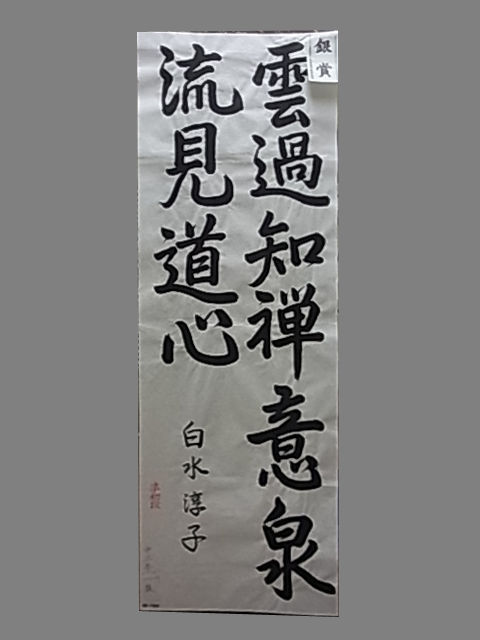 銀賞
雲過知禅意泉
流見道心
白水淳子